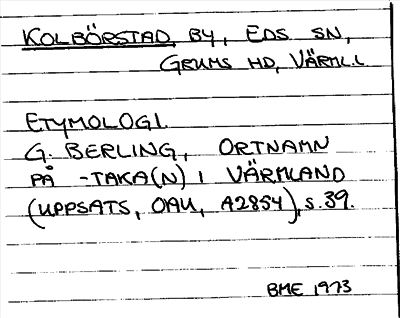 KOLBÖRSTAD BY, EDS SN,
GRUMS HD, VÄRML.L
ETYMOLOGI.
G. BERLING, ORTNAMN
PÅ -TAKA(N) I VÄRMLAND
(UPPSATS, OAU, A2854), s.39.
BME 1973